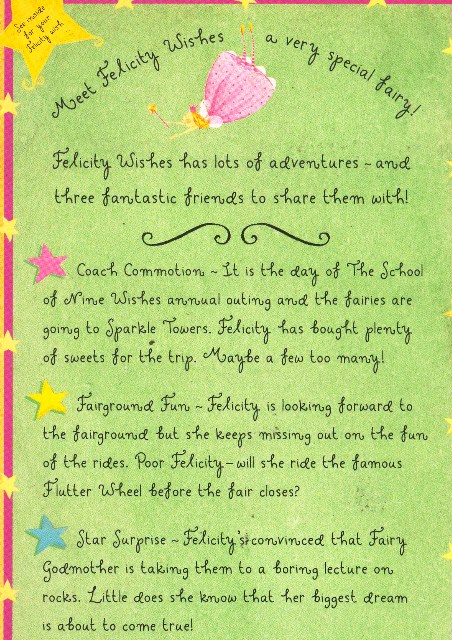 See inside
for your
Felicity wish
Meet Felicity Wishes a very special fairy!
Felicity Wishes has lots of adventures ~ and
three fantastic friends to share them with!
Coach Commotion ~ It is the day of The School
of Nine Wishes annual outing and the fairies are
going to Sparkle Towers. Felicity has bought plenty
of sweets for the trip. Maybe a few too many!
Fairground Fun ~ Felicity is looking forward to
the fairground but she keeps missing out on the fun
of the rides. Poor Felicity – will she ride the famous
Flutter Wheel before the fair closes?
Star Surprise ~ Felicity's convinced that Fairy
Godmother is taking them to a boring lecture on
rocks. Little does she know that her biggest dream
is about to come true!